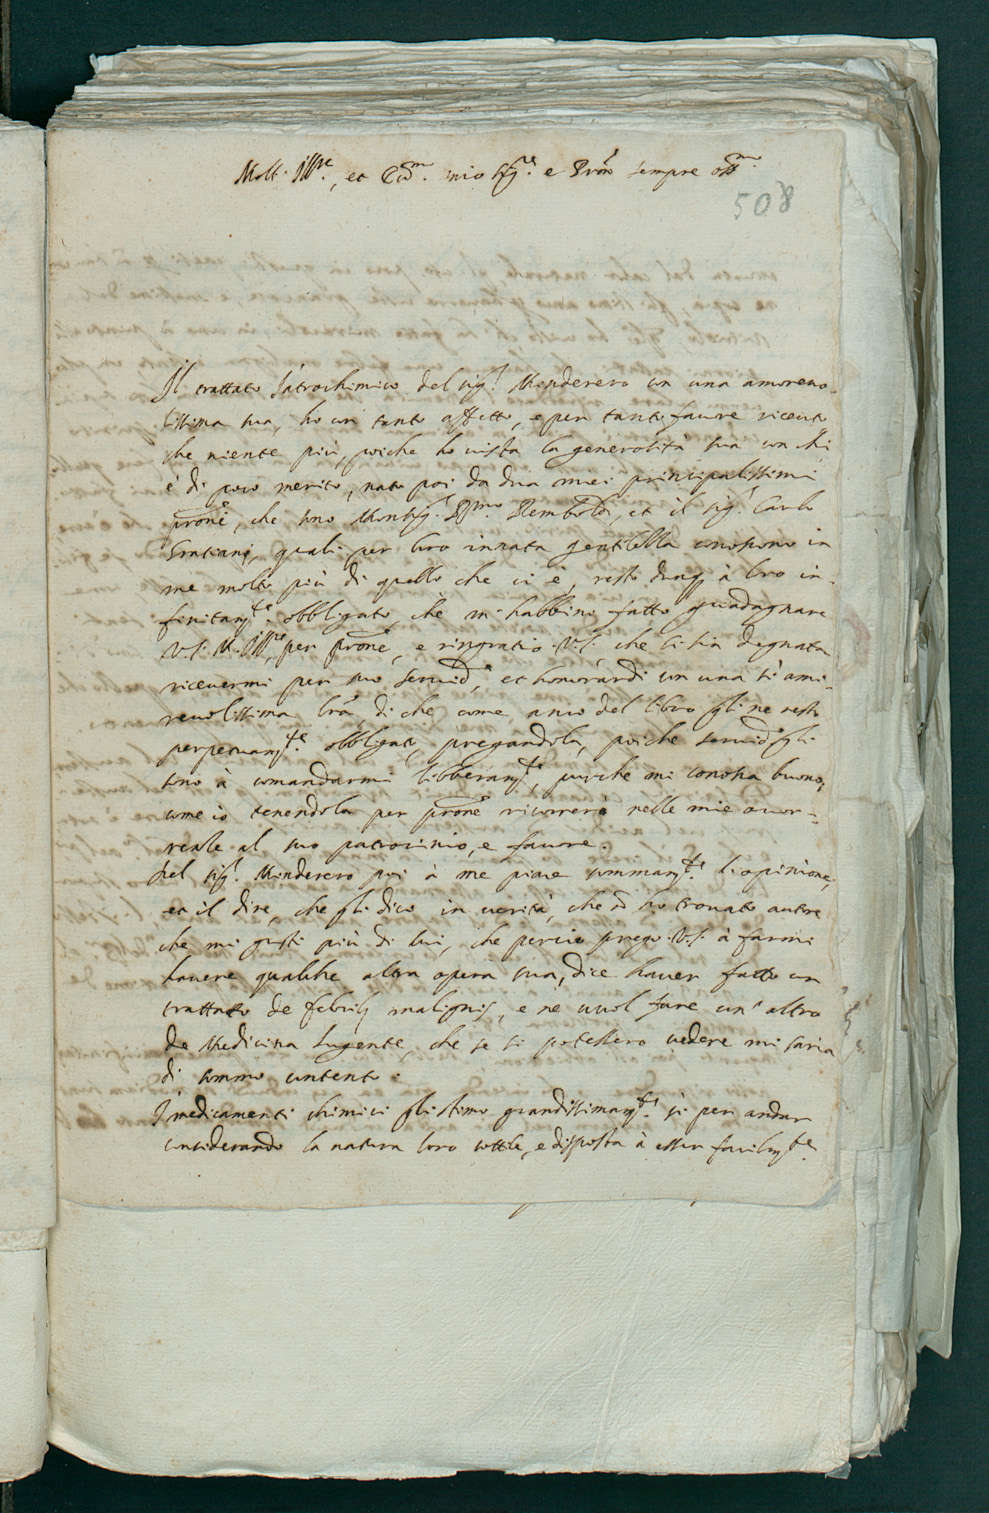 Molt' Ill.re, et Ecc.mo mio Sig.re e Pron̄ sempre oss.mo
508
Il trattato Iatrochimico del Sig.r Minderero con una amorevo-
lissima sua, ho con tanto affetto, e per tanto favore ricevuto
che niente più, poiche ho vista la generosità sua con chi
è di poco merito, nata poi da dua miei principalissimi
prōni, che sono Monsig.r R.mo Remboldi, et il Sig.r Carlo
Gratiani, quali per loro innata gentilezza conoscono in
me molto più di quello che ci è, resto dunq; à loro in-
finitam.te obbligato, chè m'habbino fatto guadagnare
V.S. M. Ill.re per prōne, e ringratio V.S. che si sia degnata
ricevermi per suo servid.e, et honorardi con una sì amo-
revolissima lrā, di che come anco del libro gli ne resto
perpetuam.te obbligato, pregandola, poiche servid.e gli
sono à comandarmi libberam.te, purche mi conosca buono,
come io tenendola per prōne ricorrerò nelle mie occor-
renze al suo patrocinio, e favore.
Del Sig.r Minderero poi à me piace sommam.te l'opinione,
et il dire, che gli dico in verità, che nō ho trovato autore
che mi gusti più di lui, che perciò prego V.S. à farmi
havere qualche altra opera sua, dice haver fatto un
trattato de febrib; malignis, e ne vuol fare un' altro
de Medicina lugente, che se si potessero vedere mi saria
di sommo contento.
I medicamenti chimici gli stimo grandissimam.te sì per andar
considerando la natura loro sottile, e disposta à esser facilm.te